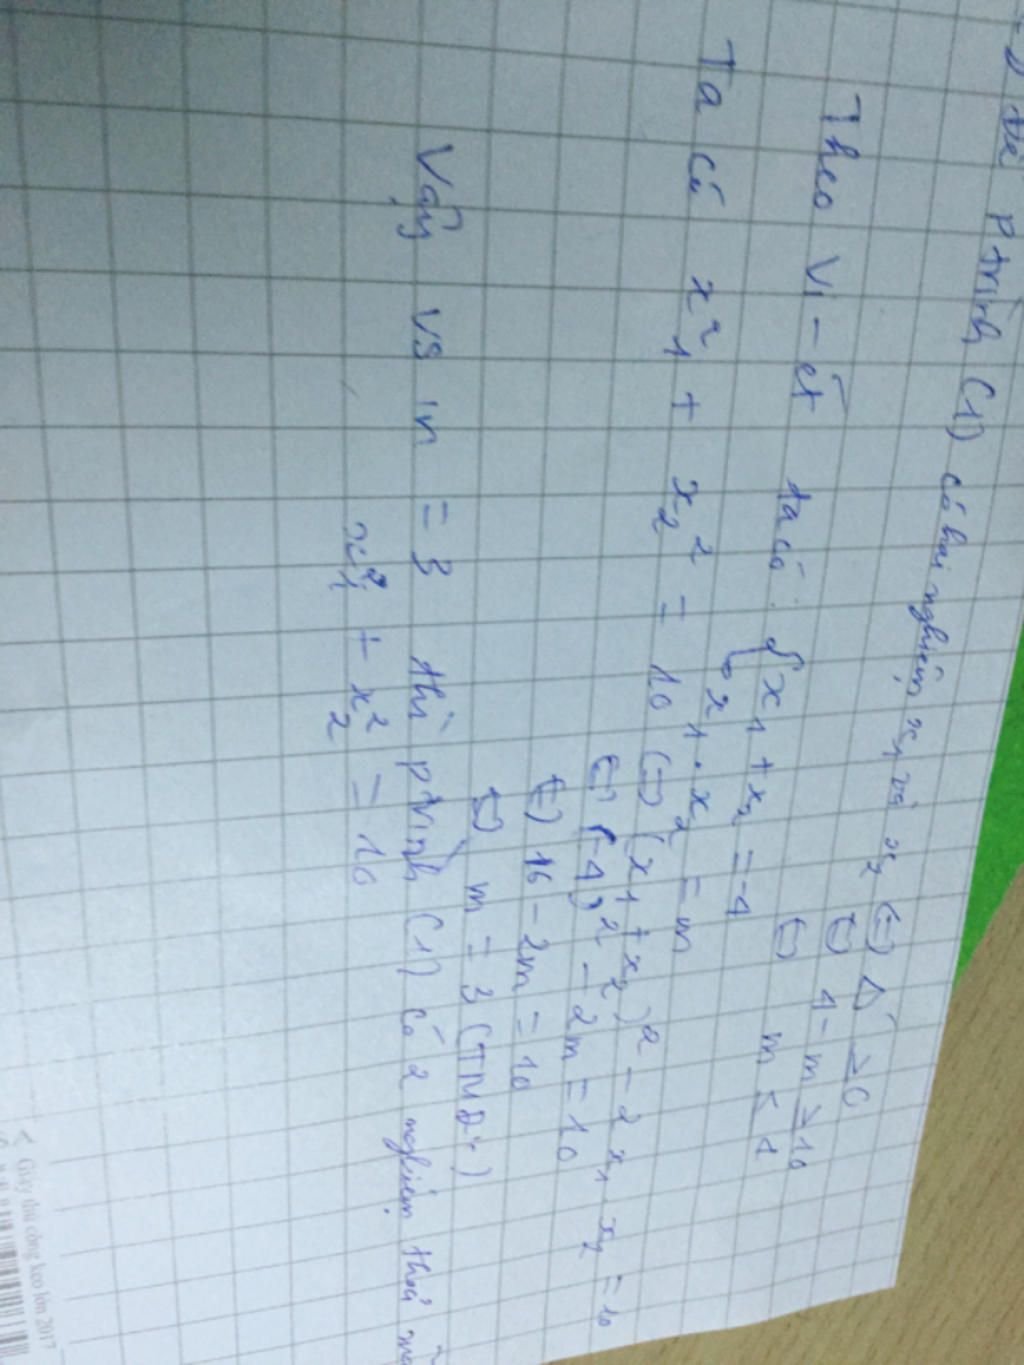 để ptrình (1) có hai nghiệm x₁ và x₂ (=) Δ' ≥ 0
(=) 4 - m ≥ 0
(=) m ≤ 4
Theo Vi-ét ta có: { x₁ + x₂ = -4
x₁ . x₂ = m
Ta có x₁² + x₂² = 10 (=) (x₁ + x₂)² - 2x₁x₂ = 10
(=) (-4)² - 2m = 10
(=) 16 - 2m = 10
(=) m = 3 (TMĐK)
Vậy vs m = 3 thì ptrình (1) có 2 nghiệm thoả
x₁² + x₂² = 10
Giấy thủ công kéo lớn 2017